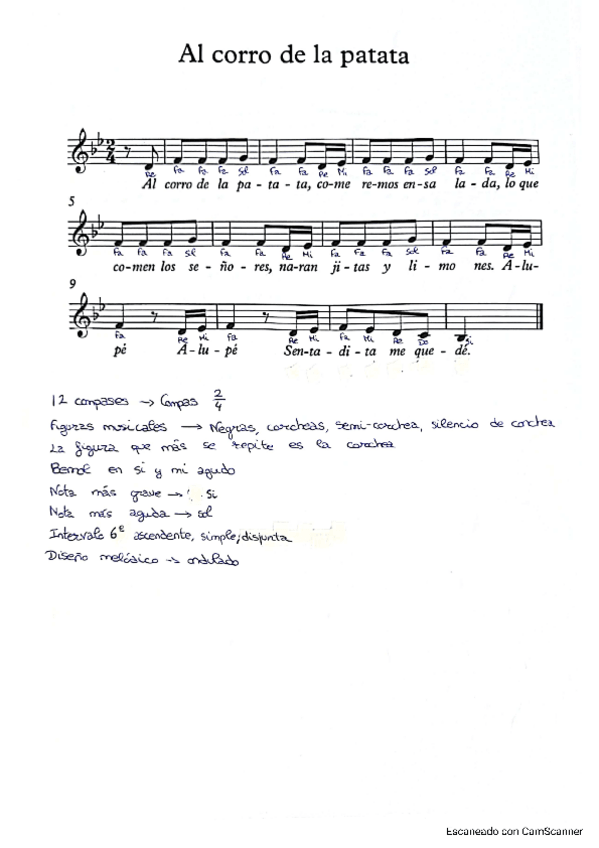 Al corro de la patata
2
4
Re Fa Fa Fa Sol Fa Fa Re Mi Fa Fa Fa Sol Fa Fa Re Mi
Al corro de la pa - ta - ta, co-me re-mos en-sa la - da, lo que
5
Fa Fa Fa Sl Fa Fa Re Mi Fa Fa Fa Sol Fa Fa Re Mi
co-men los se - ño - res, na-ran ji - tas y li - mo nes. A-lu-
9
Fa Re Mi Fa Re Mi Fa Mi Re Do Si
pé A-lu-pé Sen-ta - di - ta me que - dé.
12 compases → Compas 2/4
Figuras musicales → Negras, corcheas, semi-corchea, silencio de corchea
La figura que más se repite es la corchea
Bemol en si y mi agudo
Nota más grave → Si
Nota más aguda → sol
Intervalo 6ª ascendente, simple, disjunta
Diseño melódico → ondulado
Escaneado con CamScanner